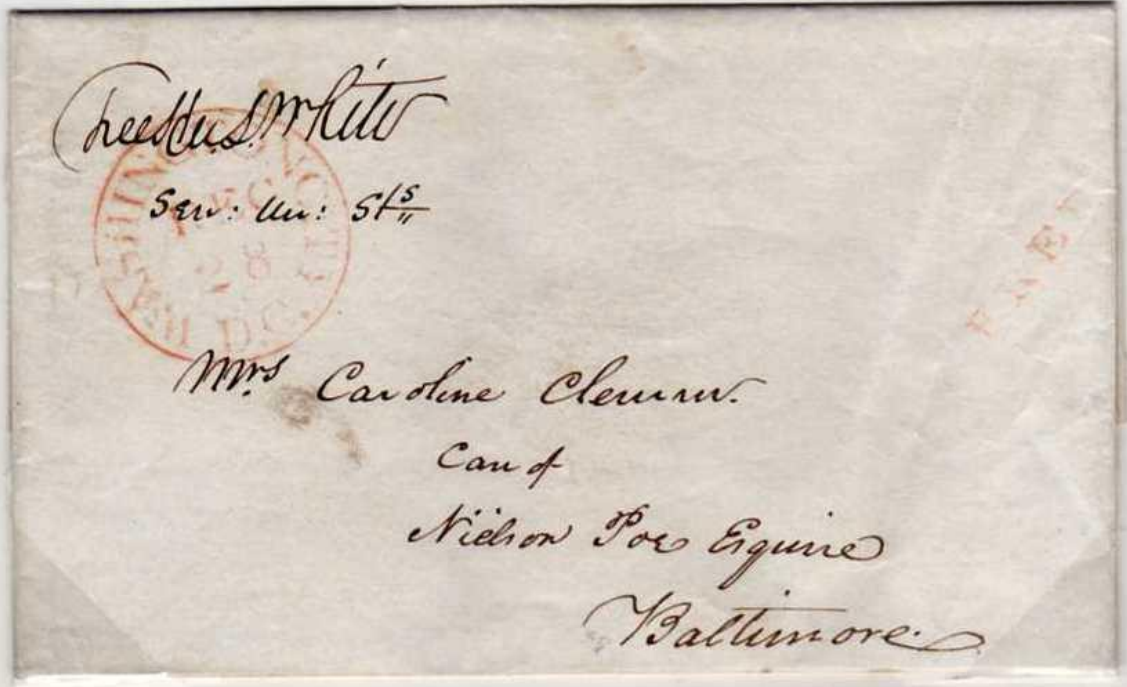 Free Hu. L. White
Sen: Un: Sts
WASHINGTON CITY
DEC
28
D.C.
FREE
Mrs Caroline Clemm.
Care of
Nielson Poe Esquire
Baltimore.